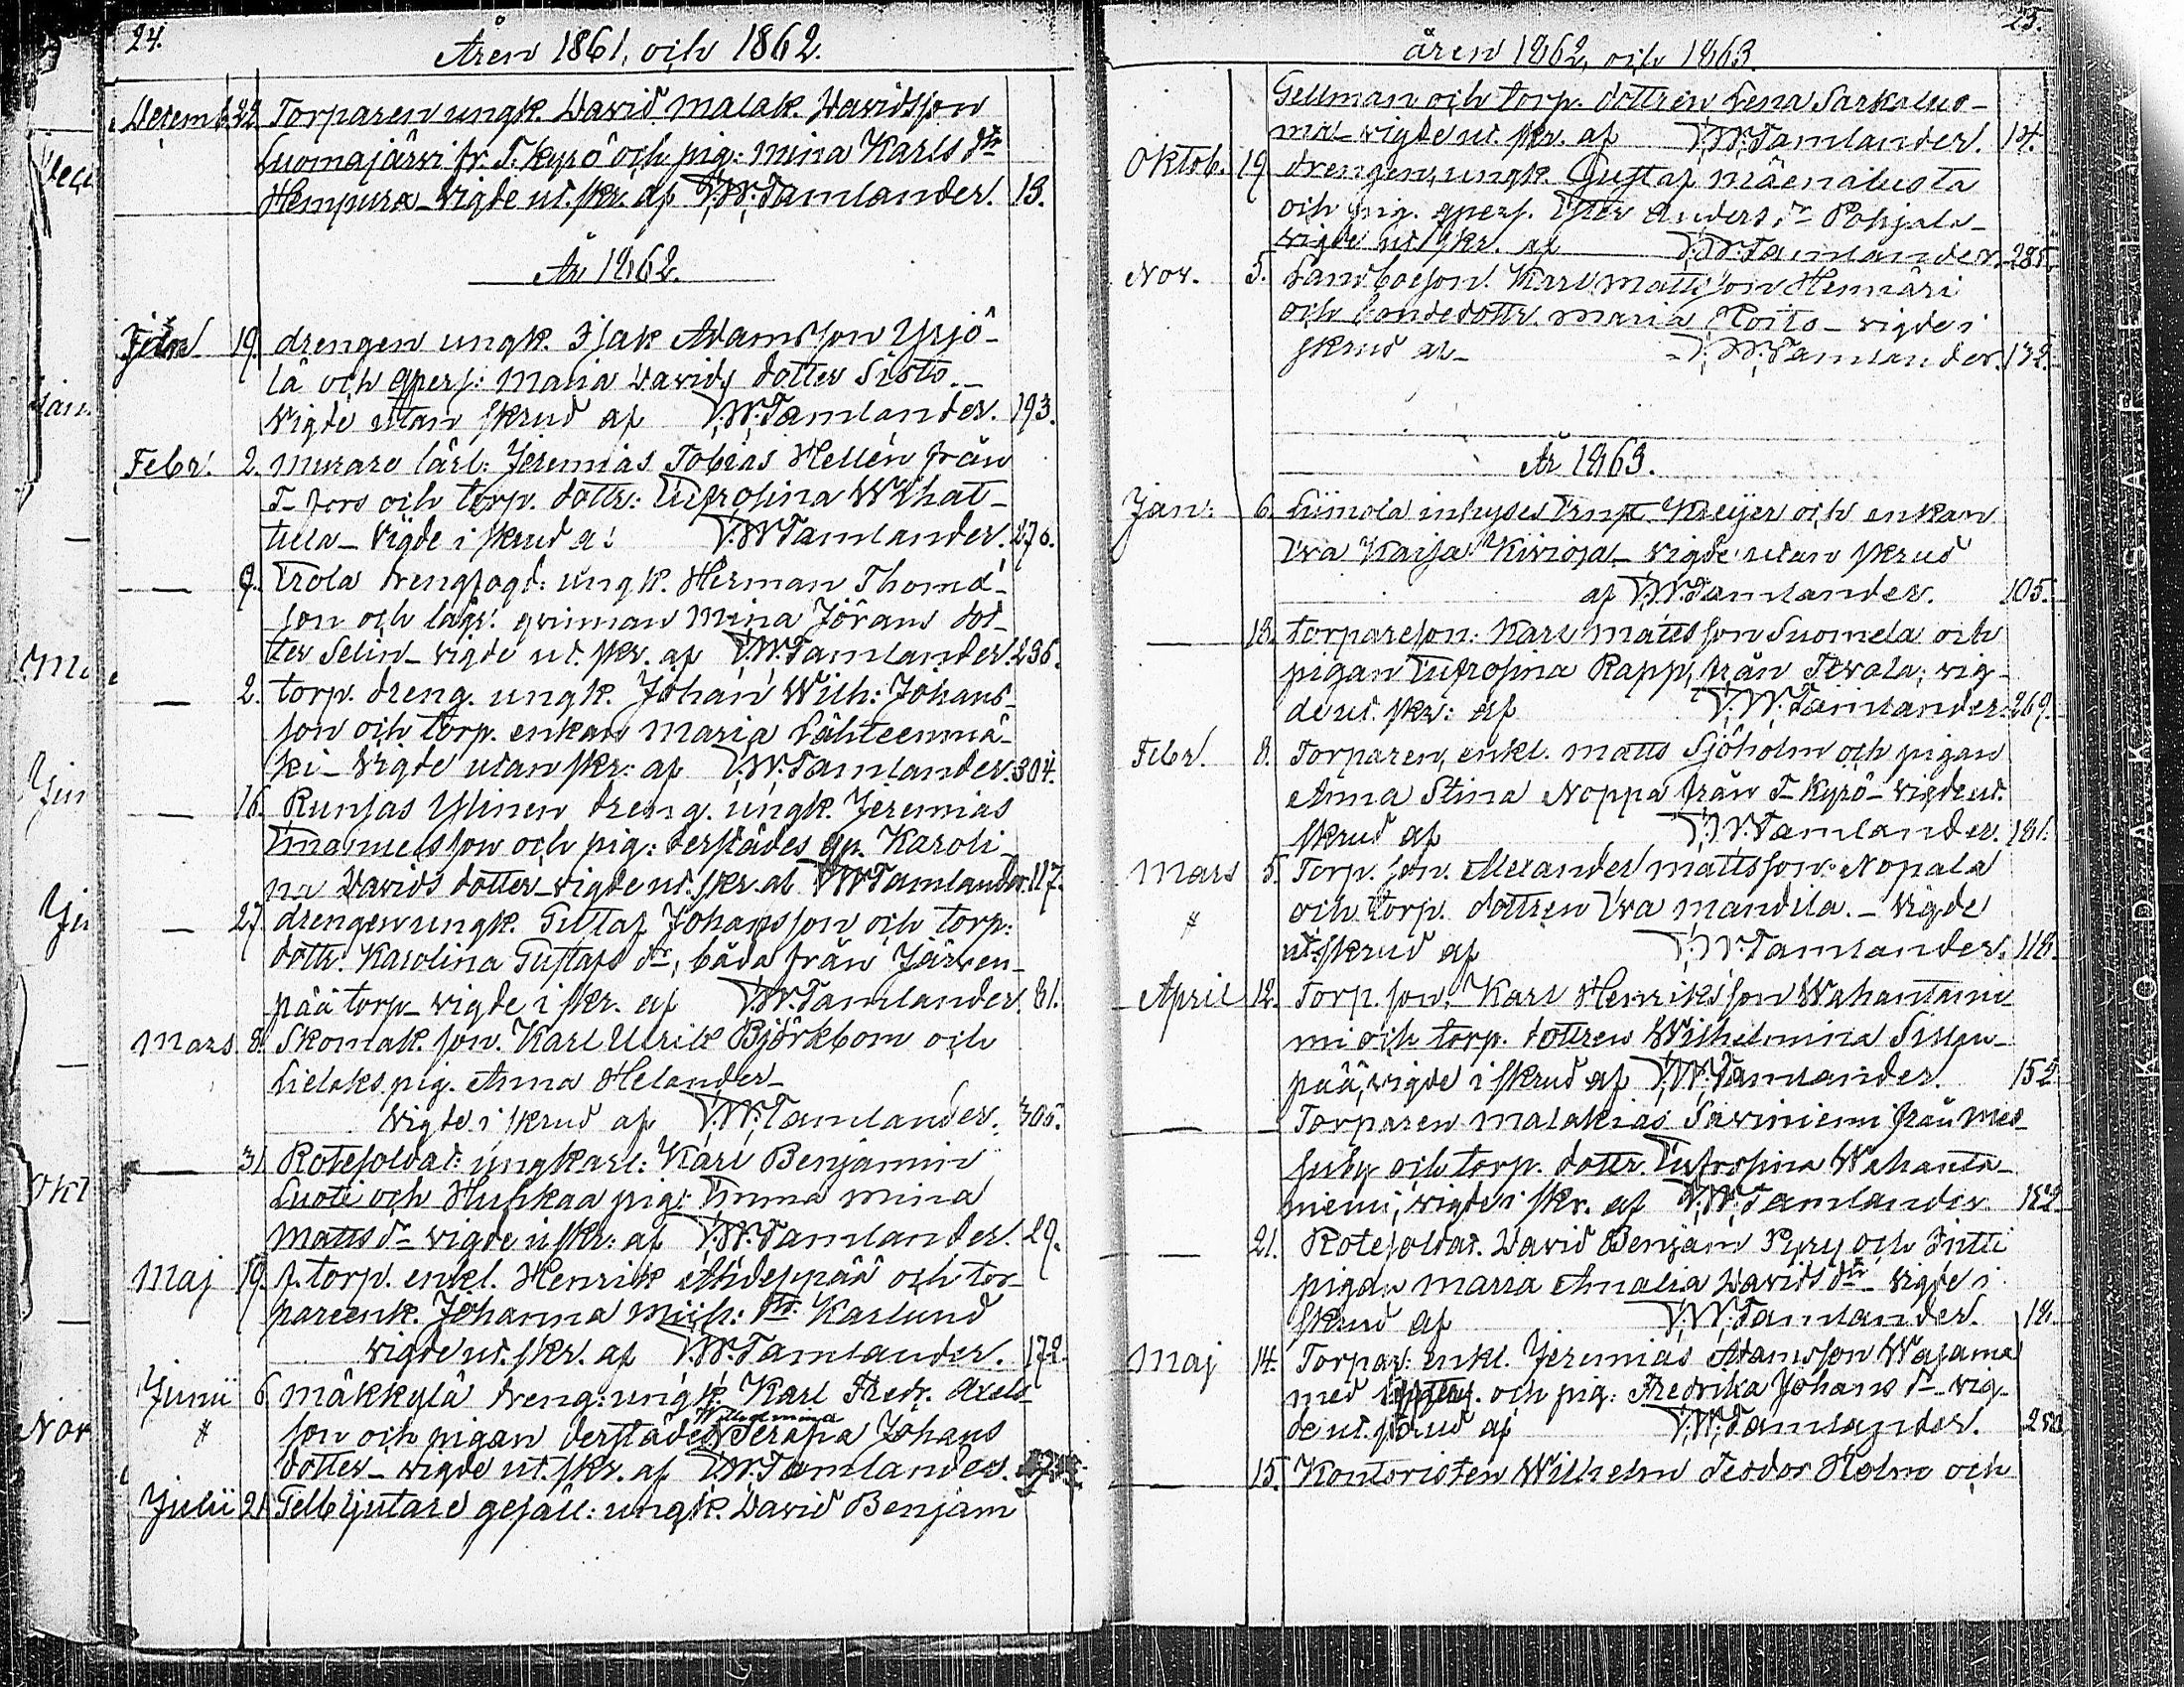 24.
Åren 1861, och 1862.
Decemb. 22. Torparen ungk. David Malak. Davidsson
Luomajärvi fr. T. Kyrö och pig: Mina Karls dr
Hempura - vigde ut. skr. af V.W. Tamlander. 13.
År 1862.
19. drengen ungk. Isak Adamsson Yrjö-
lä och qpers: Maja Davids dotter Sisto. -
vigde utan skrud af V.W. Tamlander. 193.
Febr. 2. murare lärl: Jeremias Tobias Hellén från
T-fors och torp. dottr: Eufrosina Wihat-
tula - vigde i skrud a: V.W. Tamlander. 276.
— 9. Erola drengfogd: ungk. Herman Thoma-
son och lägr. qvinnan Mina Jörans dot-
ter Selin - vigde ut. skr. af V.W. Tamlander. 236.
— 2. torp. dreng. ungk. Johan Wilh: Johans-
son och torp. enkan Maria Lähteenmä-
ki - vigde utan skr: af V.W. Tamlander. 304.
— 16. Runsas Ylinen dreng. ungk. Jeremias
Emanuelsson och pig: derstädes qp. Karoli-
na Davids dotter - vigde ut. skr. af V.W. Tamlander. 117.
— 27. drengen ungk. Gustaf Johansson och torp:
dottr. Karolina Gustafs dr, båda från Järven-
pää torp - vigde i skr. af V.W. Tamlander. 81.
Mars 8. Skomak. son. Karl Ulrik Björkbom och
Lielaks pig. Anna Helander -
vigde i skrud af V.W. Tamlander. 305.
— 31. Rotesoldat: ungkarl: Karl Benjamin
Luoti och Huhkaa pig: Emma Mina
Matts dr - vigde i skr: af V.W. Tamlander. 29.
Maj 19. f. torp. enkl. Henrik Ahdeppää och tor-
pareenk. Johanna Mich: dr. Karlund
vigde ut. skr. af V.W. Tamlander. 172.
Junii 6. Mäkkylä dreng: ungk: Karl Fredr. Axels-
Wilhelmina
son och pigan derstädes Serafia Johans
dotter - vigde ut. skr. af V.W. Tamlander.
Julii 21. Gelbgjutare gesäll: ungk. David Benjam
25.
åren 1862, och 1863.
Gellman och torp. dottren Lena Sarkaluo-
ma - vigde ut. skr. af V.W. Tamlander. 14.
Oktob. 19. drengen, ungk. Gustaf Mäenalusta
och pig. qpers. Ester Anders dr Pohjala -
vigde ut. skr. af V.W. Tamlander. 285.
Nov. 5. Landboeson. Karl Mattsson Hennäri
och bondedottr. Maria Hoito - vigde i
skrud af - V.W. Tamlander. 132.
År 1863.
Jan: 6. Liimola inhyses Ernst Kreijer och enkan
Eva Kaisa Kivioja - vigde utan skrud
af V.W. Tamlander. 105.
— 13. torpareson: Karl Mattsson Suomela och
pigan Eufrosina Rapp, från Tervola; vig-
de ut. skr: af V.W. Tamlander. 269.
Febr. 8. Torparen, enkl. Matts Sjöholm och pigan
Anna Stina Noppa från T-Kyrö - vigde ut.
skrud af V.W. Tamlander. 181.
Mars 5. Torp. son. Alexander Mattsson Nopala
och torp. dottren Eva Mandila. - vigde
ut. skrud af V.W. Tamlander. 118.
April 12. Torp. son. Karl Henriksson Wahantanie
mi och torp. dottren Wilhelmina Sillan-
pää, vigde i skrud af V.W. Tamlander. 152.
— — Torparen Malakias Saviniemi från Mes
suby och torp. dottr. Eufrosina Wahanta-
niemi, vigde i skr. af V.W. Tamlander. 152.
— 21. Rotesoldat. David Benjam Pyry och Jutti
pigan Maria Amalia Davids dr vigde i
skrud af V.W. Tamlander. 18.
Maj 14. Torpar: enkl. Jeremias Adamsson Wajama
med och pig: Fredrika Johans dr - vig-
de ut. skrud af V.W. Tamlander.
— 15. Kontoristen Wilhelm Teodor Holm och
KODAK SAFETY